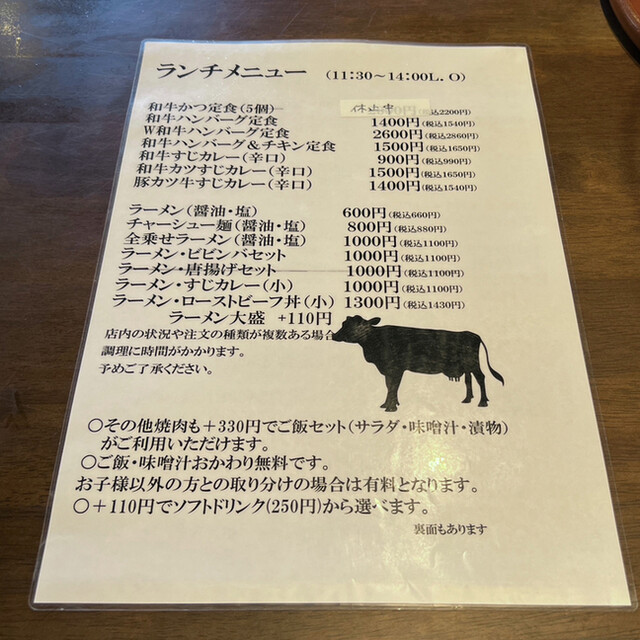 ランチメニュー (11:30～14:00L.O)
和牛かつ定食(5個) 休止中 (税込2200円)
和牛ハンバーグ定食 1400円(税込1540円)
W和牛ハンバーグ定食 2600円(税込2860円)
和牛ハンバーグ&チキン定食 1500円(税込1650円)
和牛すじカレー(辛口) 900円(税込990円)
和牛カツすじカレー(辛口) 1500円(税込1650円)
豚カツ牛すじカレー(辛口) 1400円(税込1540円)
ラーメン(醤油・塩) 600円(税込660円)
チャーシュー麺(醤油・塩) 800円(税込880円)
全乗せラーメン(醤油・塩) 1000円(税込1100円)
ラーメン・ビビンバセット 1000円(税込1100円)
ラーメン・唐揚げセット 1000円(税込1100円)
ラーメン・すじカレー(小) 1000円(税込1100円)
ラーメン・ローストビーフ丼(小) 1300円(税込1430円)
ラーメン大盛 +110円
店内の状況や注文の種類が複数ある場合
調理に時間がかかります。
予めご了承ください。
○その他焼肉も+330円でご飯セット(サラダ・味噌汁・漬物)
がご利用いただけます。
○ご飯・味噌汁おかわり無料です。
お子様以外の方との取り分けの場合は有料となります。
○+110円でソフトドリンク(250円)から選べます。
裏面もあります